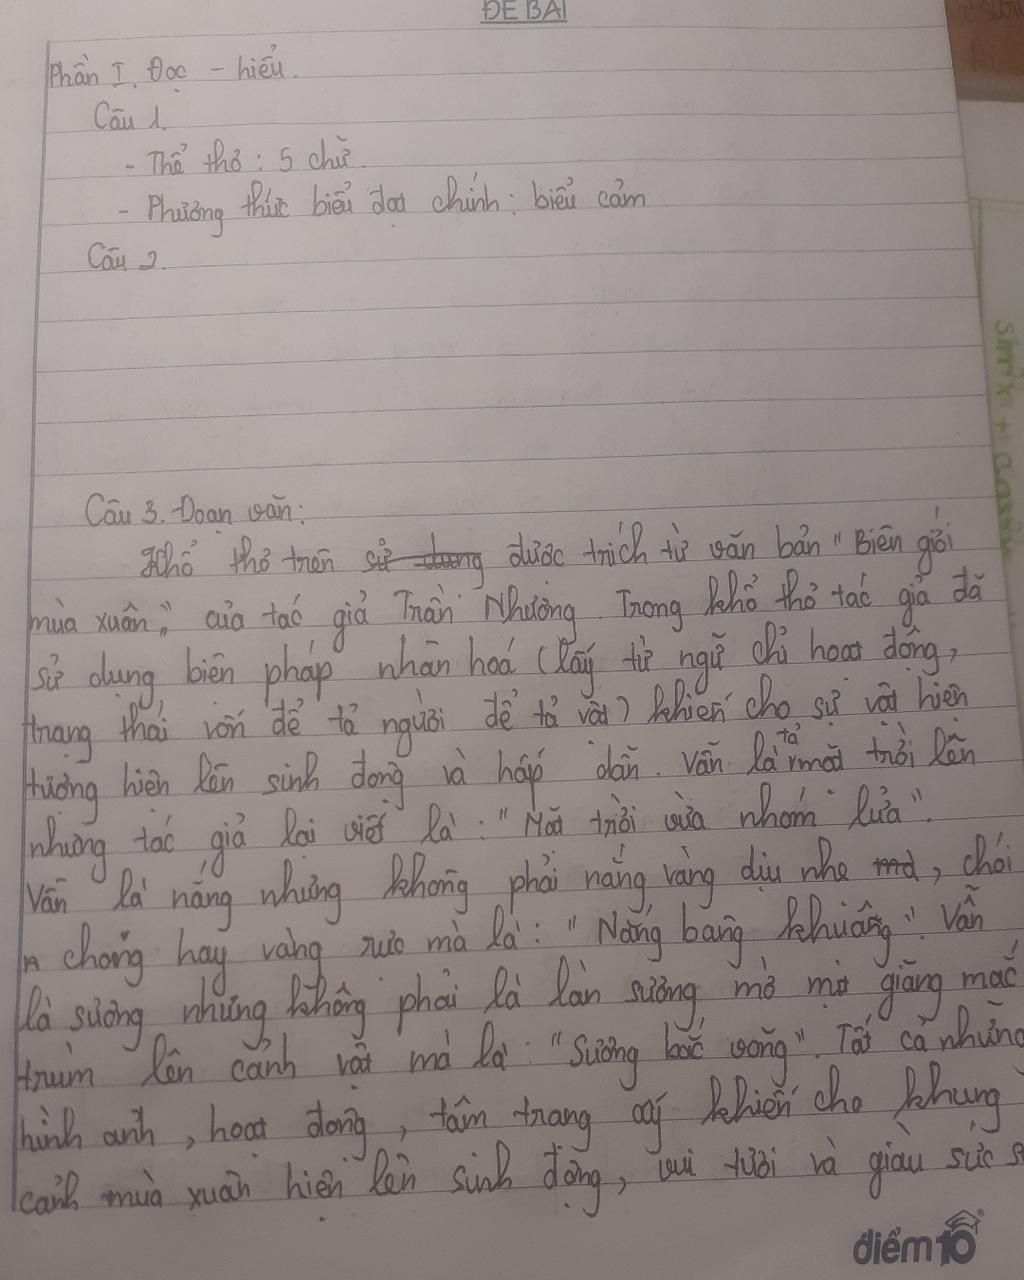 ĐỀ BÀI
Phần I. Đọc - hiểu.
Câu 1.
- Thể thơ: 5 chữ.
- Phương thức biểu đạt chính: biểu cảm
Câu 2.
Câu 3. Đoạn văn:
Khổ thơ trên sử dụng được trích từ văn bản "Biên giới
mùa xuân" của tác giả Trần Nhương. Trong khổ thơ tác giả đã
sử dụng biện pháp nhân hoá (lấy từ ngữ chỉ hoạt động,
trạng thái vốn để tả người để tả vật) khiến cho sự vật hiện
tượng hiện lên sinh động và hấp dẫn. Vẫn là tả mặt trời lên
nhưng tác giả lại viết là: "Mặt trời vừa nhóm lửa".
Vẫn là nắng nhưng không phải nắng vàng dịu nhẹ, chói
chang hay vàng rực mà là: "Nắng bâng khuâng". Vẫn
là sương nhưng không phải là làn sương mờ mịt giăng mắc
trùm lên cảnh vật mà là: "Sương bắc võng". Tất cả những
hình ảnh, hoạt động, tâm trạng ấy khiến cho khung
cảnh mùa xuân hiện lên sinh động, vui tươi và giàu sức s
điểm 10
Simix + Casio